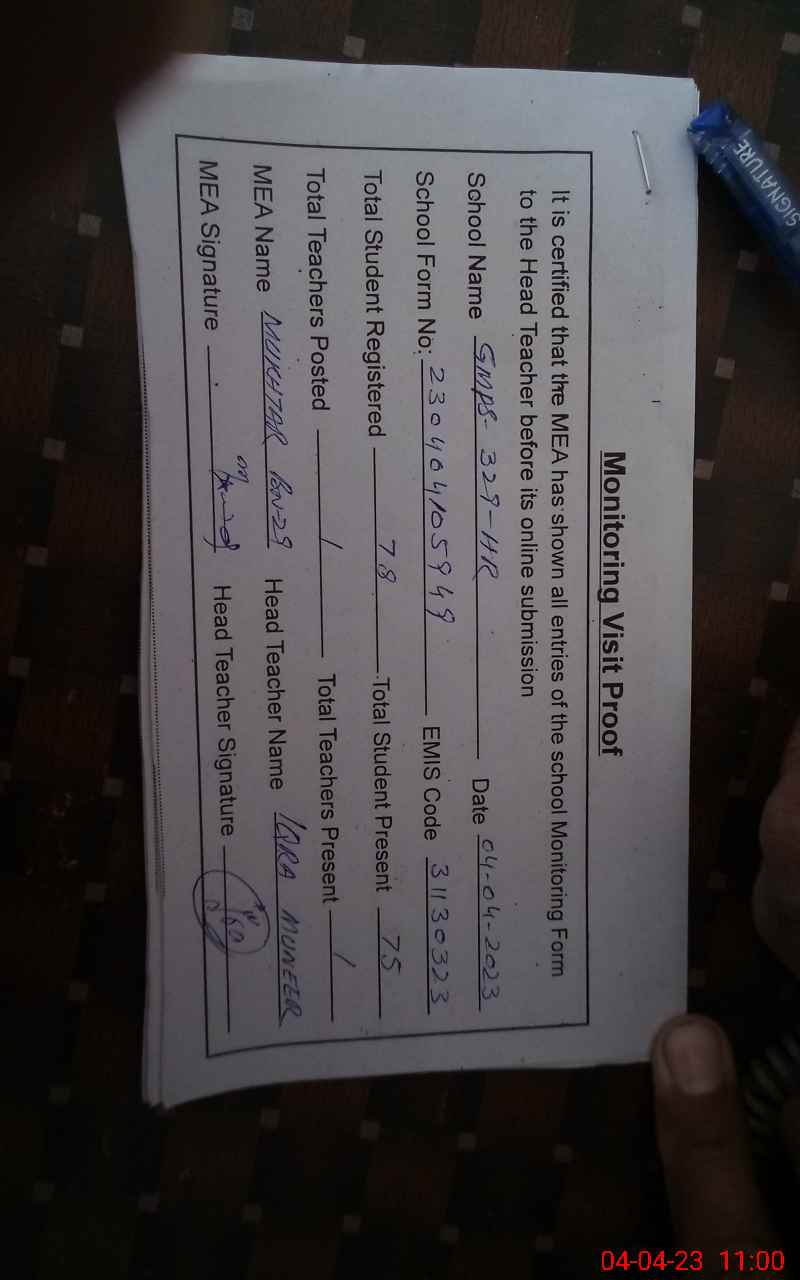 Monitoring Visit Proof
It is certified that the MEA has shown all entries of the school Monitoring Form
to the Head Teacher before its online submission
School Name GMPS-329-HR Date 04-04-2023
School Form No: 230404105949 EMIS Code 31130323
Total Student Registered 78 Total Student Present 75
Total Teachers Posted 1 Total Teachers Present 1
MEA Name MUKHTAR BN-29 Head Teacher Name IQRA MUNEER
MEA Signature Head Teacher Signature
SIGNATURE
04-04-23 11:00